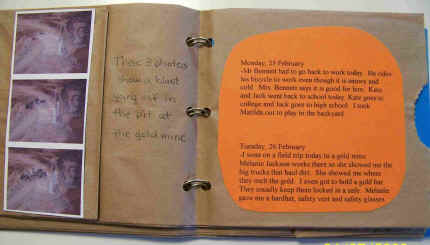 These 3 photos
show a blast
going off in
the pit at
the gold mine
Monday, 25 February
-Mr Bennett had to go back to work today. He rides
his bicycle to work even though it is snowy and
cold. Mrs. Bennett says it is good for him. Kate
and Jack went back to school today. Kate goes to
college and Jack goes to high school. I took
Matilda out to play in the backyard.
Tuesday, 26 February
-I went on a field trip today to a gold mine.
Melanie Jackson works there so she showed me the
big trucks that haul dirt. She showed me where
they melt the gold. I even got to hold a gold bar.
They usually keep them locked in a safe. Melanie
gave me a hardhat, safety vest and safety glasses